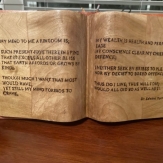 MY MIND TO ME A KINGDOM IS;
SUCH PRESENT JOYS THEREIN I FIND
THAT IT EXCELS ALL OTHER BLISS
THAT EARTH AFFORDS OR GROWS BY
KIND:
THOUGH MUCH I WANT THAT MOST
WOULD HAVE,
YET STILL MY MIND FORBIDS TO
CRAVE.
MY WEALTH IS HEALTH AND PERFECT
EASE
MY CONSCIENCE CLEAR MY CHIEF
DEFENCE;
I NEITHER SEEK BY BRIBES TO PLEASE
NOR BY DECEIT TO BREED OFFENCE:
THUS DO I LIVE; THUS WILL I DIE;
WOULD ALL DID SO AS WELL AS I!